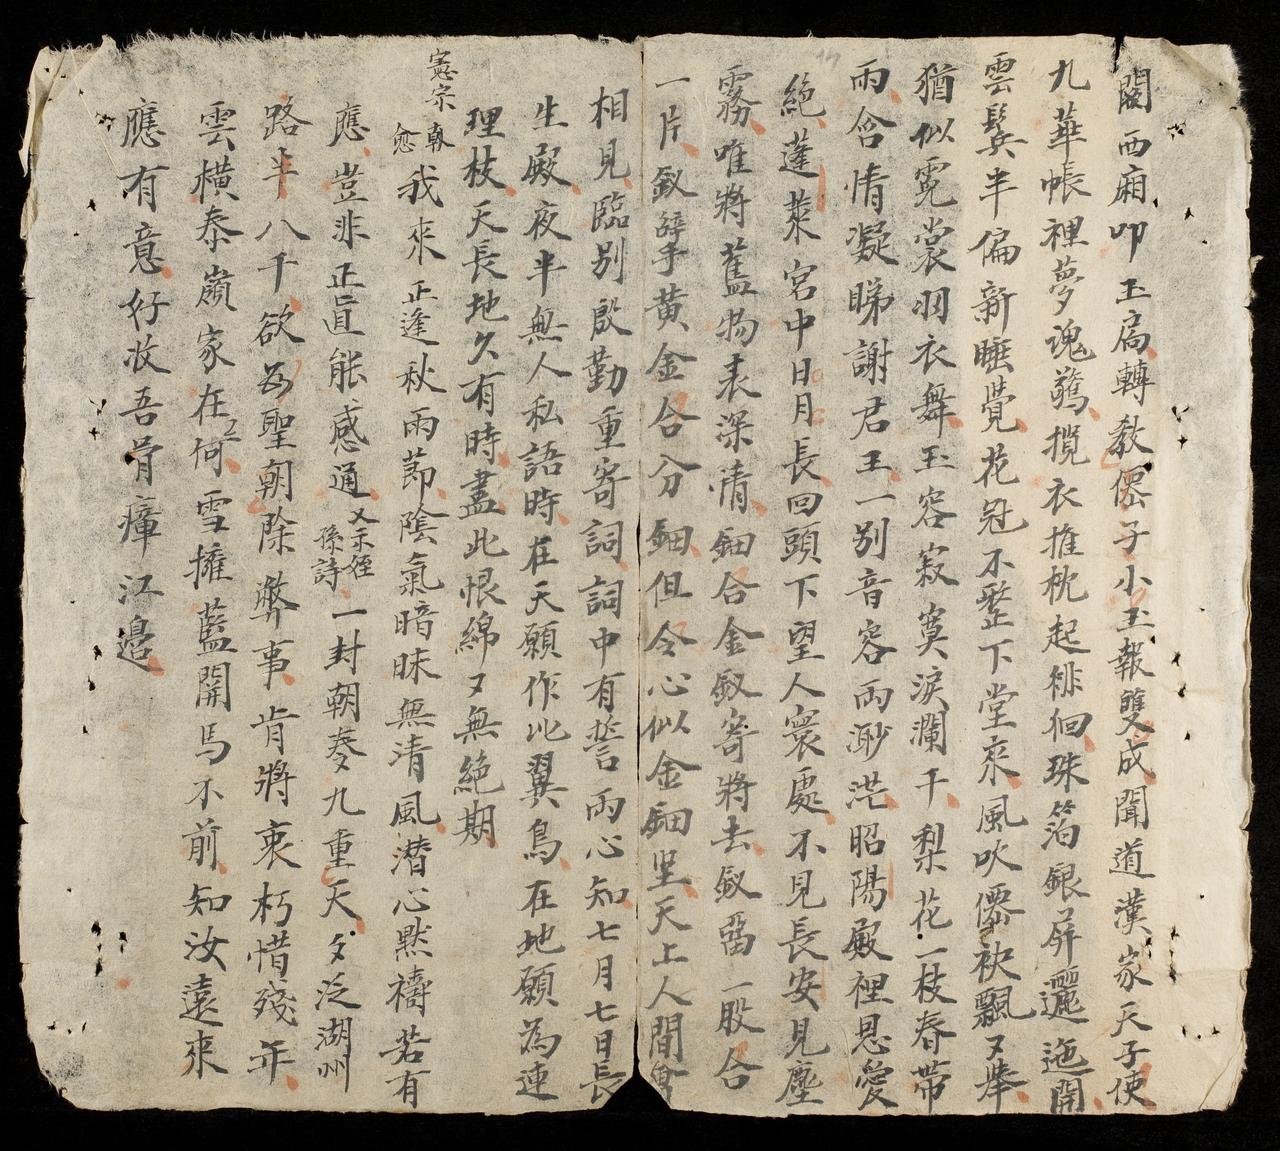 闕西廂叩玉扃轉敎僊子小玉報雙成聞道漢家天子使
九華帳裡夢魂驚攬衣推枕起徘徊珠箔銀屏邐迤開
雲鬂半偏新睡覺花冠不整下堂來風吹僊袂飄又舉
猶似霓裳羽衣舞玉容寂寞淚瀾干梨花一枝春帶
雨含情凝睇謝君王一別音容兩渺茫昭陽殿裡恩愛
絶蓬萊宮中日月長回頭下望人寰處不見長安見塵
霧唯將舊物表深情鈿合金釵寄將去釵畱一股合
一片釵擘黄金合分鈿但令心似金鈿堅天上人間會
相見臨别殷勤重寄詞詞中有誓兩心知七月七日長
生殿夜半無人私語時在天願作比翼鳥在地願為連
理枝天長地久有時盡此恨綿又無絶期
憲宗朝
愈
我來正逢秋雨莭陰氣暗昧無清風潜心黙禱若有
應豈非正直能感通
又示姪
孫詩
一封朝奏九重天夕泛湖州
路半八千欲為聖朝除弊事肯將衷朽惜殘年
雲横泰嶺家在何雪擁藍開馬不前知汝遠來
應有意好收吾骨瘴江邉